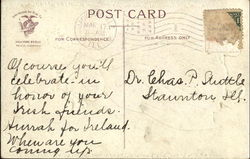 POST CARD
FOR CORRESPONDENCE
FOR ADDRESS ONLY
Of course you'll
celebrate in
honor of your
Irish friends.
Hurrah for Ireland.
When are you
coming up.
Dr. Chas. P. Suttle
Staunton Ill.